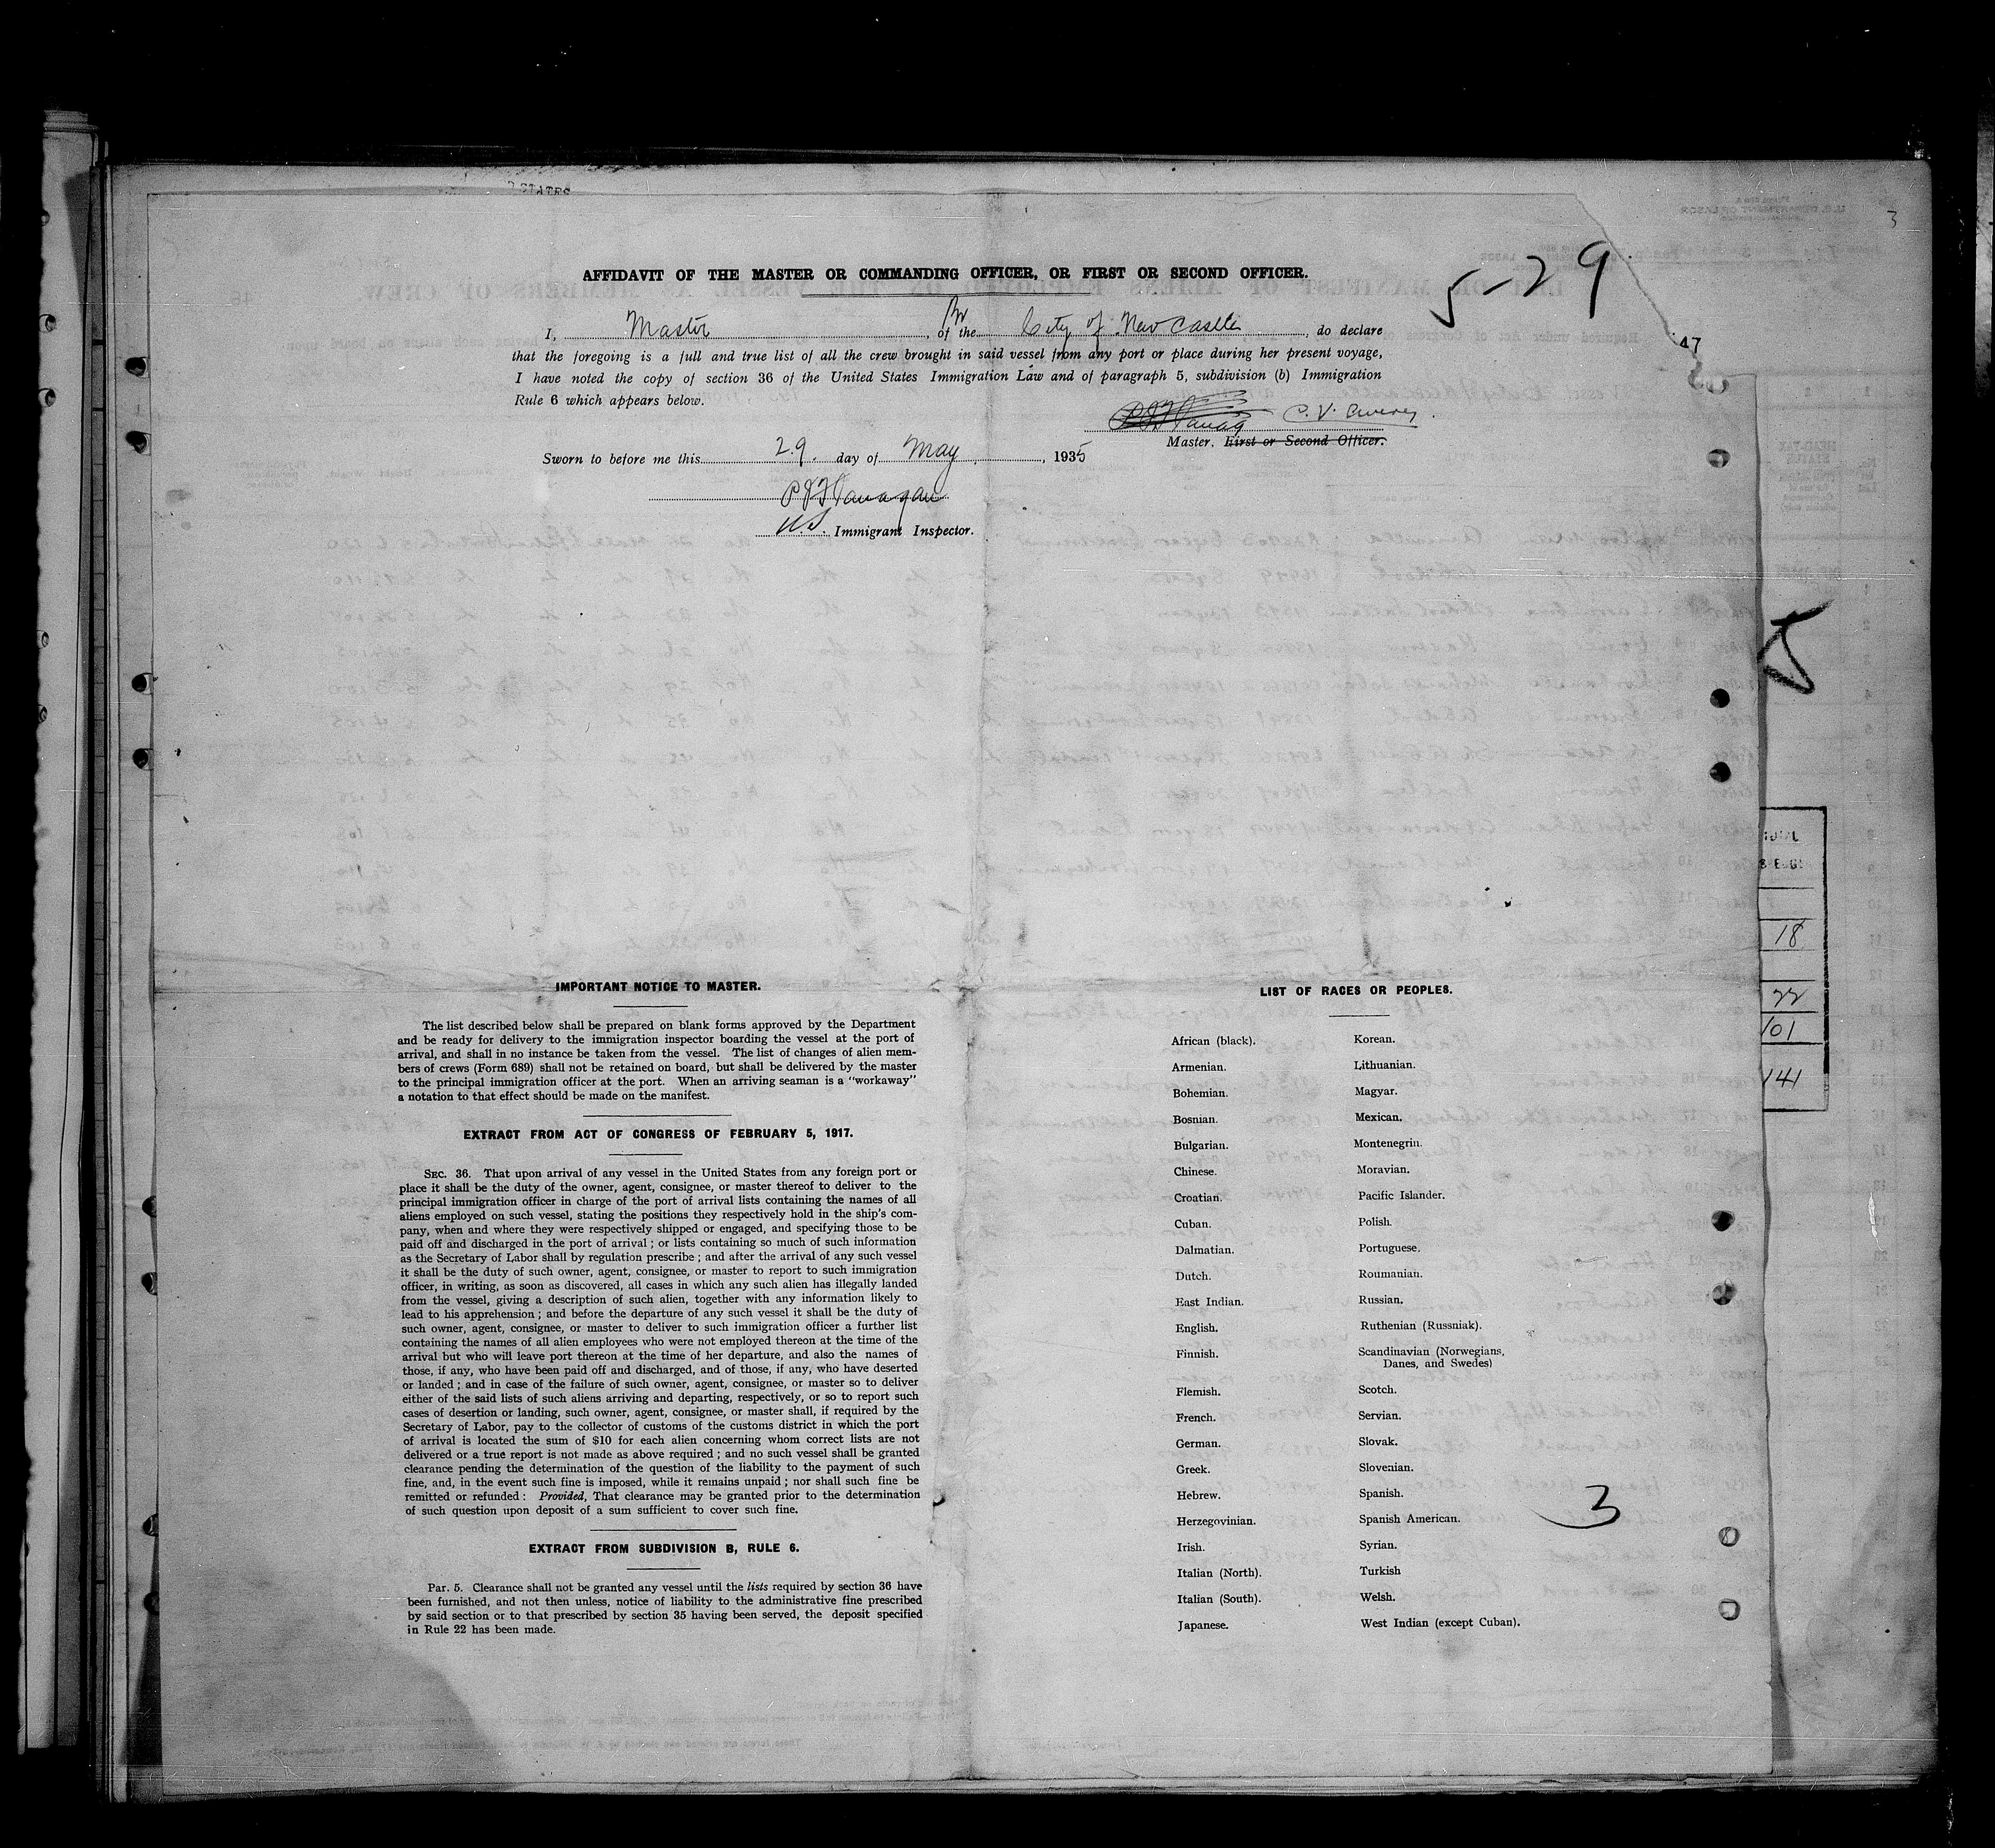 STATES
3
AFFIDAVIT OF THE MASTER OR COMMANDING OFFICER, OR FIRST OR SECOND OFFICER.
5-29
I, Master, of the Br City of New Castle, do declare
47
that the foregoing is a full and true list of all the crew brought in said vessel from any port or place during her present voyage,
I have noted the copy of section 36 of the United States Immigration Law and of paragraph 5, subdivision (b) Immigration
Rule 6 which appears below.
C. V.
Master, First or Second Officer.
Sworn to before me this 29. day of May, 1935
P J Flanagan
U.S. Immigrant Inspector.
TOTAL
18
22
101
141
IMPORTANT NOTICE TO MASTER.
The list described below shall be prepared on blank forms approved by the Department
and be ready for delivery to the immigration inspector boarding the vessel at the port of
arrival, and shall in no instance be taken from the vessel. The list of changes of alien mem-
bers of crews (Form 689) shall not be retained on board, but shall be delivered by the master
to the principal immigration officer at the port. When an arriving seaman is a "workaway"
a notation to that effect should be made on the manifest.
EXTRACT FROM ACT OF CONGRESS OF FEBRUARY 5, 1917.
SEC. 36. That upon arrival of any vessel in the United States from any foreign port or
place it shall be the duty of the owner, agent, consignee, or master thereof to deliver to the
principal immigration officer in charge of the port of arrival lists containing the names of all
aliens employed on such vessel, stating the positions they respectively hold in the ship's com-
pany, when and where they were respectively shipped or engaged, and specifying those to be
paid off and discharged in the port of arrival; or lists containing so much of such information
as the Secretary of Labor shall by regulation prescribe; and after the arrival of any such vessel
it shall be the duty of such owner, agent, consignee, or master to report to such immigration
officer, in writing, as soon as discovered, all cases in which any such alien has illegally landed
from the vessel, giving a description of such alien, together with any information likely to
lead to his apprehension; and before the departure of any such vessel it shall be the duty of
such owner, agent, consignee, or master to deliver to such immigration officer a further list
containing the names of all alien employees who were not employed thereon at the time of the
arrival but who will leave port thereon at the time of her departure, and also the names of
those, if any, who have been paid off and discharged, and of those, if any, who have deserted
or landed; and in case of the failure of such owner, agent, consignee, or master so to deliver
either of the said lists of such aliens arriving and departing, respectively, or so to report such
cases of desertion or landing, such owner, agent, consignee, or master shall, if required by the
Secretary of Labor, pay to the collector of customs of the customs district in which the port
of arrival is located the sum of $10 for each alien concerning whom correct lists are not
delivered or a true report is not made as above required; and no such vessel shall be granted
clearance pending the determination of the question of the liability to the payment of such
fine, and, in the event such fine is imposed, while it remains unpaid; nor shall such fine be
remitted or refunded: Provided, That clearance may be granted prior to the determination
of such question upon deposit of a sum sufficient to cover such fine.
EXTRACT FROM SUBDIVISION B, RULE 6.
Par. 5. Clearance shall not be granted any vessel until the lists required by section 36 have
been furnished, and not then unless, notice of liability to the administrative fine prescribed
by said section or to that prescribed by section 35 having been served, the deposit specified
in Rule 22 has been made.
LIST OF RACES OR PEOPLES.
African (black).
Armenian.
Bohemian.
Bosnian.
Bulgarian.
Chinese.
Croatian.
Cuban.
Dalmatian.
Dutch.
East Indian.
English.
Finnish.
Flemish.
French.
German.
Greek.
Hebrew.
Herzegovinian.
Irish.
Italian (North).
Italian (South).
Japanese.
Korean.
Lithuanian.
Magyar.
Mexican.
Montenegrin.
Moravian.
Pacific Islander.
Polish.
Portuguese.
Roumanian.
Russian.
Ruthenian (Russniak).
Scandinavian (Norwegians,
Danes, and Swedes)
Scotch.
Servian.
Slovak.
Slovenian.
Spanish.
Spanish American.
Syrian.
Turkish
Welsh.
West Indian (except Cuban).
3